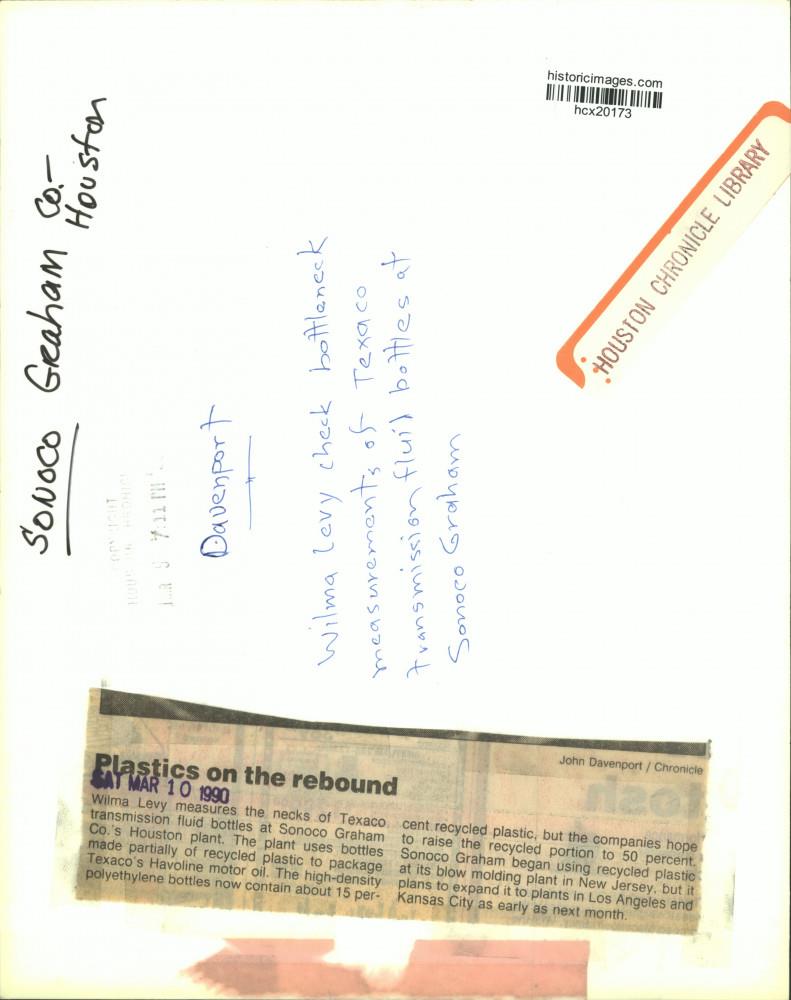 historicimages.com
hcx20173
HOUSTON CHRONICLE LIBRARY
SONOCO GRAHAM CO.-
HOUSTON
7:11 PM
Davenport
Wilma Levy check bottleneck
measurements of Texaco
transmission fluid bottles at
Sonoco Graham
John Davenport / Chronicle
Plastics on the rebound
SAT MAR 10 1990
Wilma Levy measures the necks of Texaco
transmission fluid bottles at Sonoco Graham
Co.'s Houston plant. The plant uses bottles
made partially of recycled plastic to package
Texaco's Havoline motor oil. The high-density
polyethylene bottles now contain about 15 per-
cent recycled plastic, but the companies hope
to raise the recycled portion to 50 percent.
Sonoco Graham began using recycled plastic
at its blow molding plant in New Jersey, but it
plans to expand it to plants in Los Angeles and
Kansas City as early as next month.